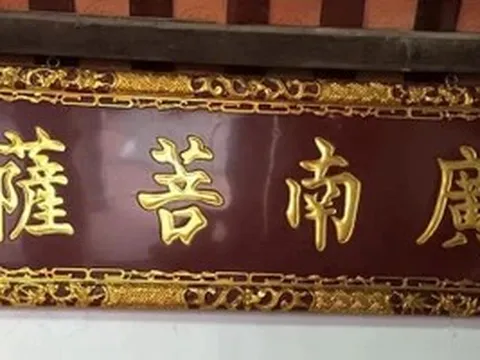 廣南菩薩